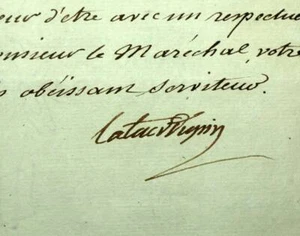 eur d'être avec un respectue
onsieur le Maréchal, votre
s obéissant serviteur.